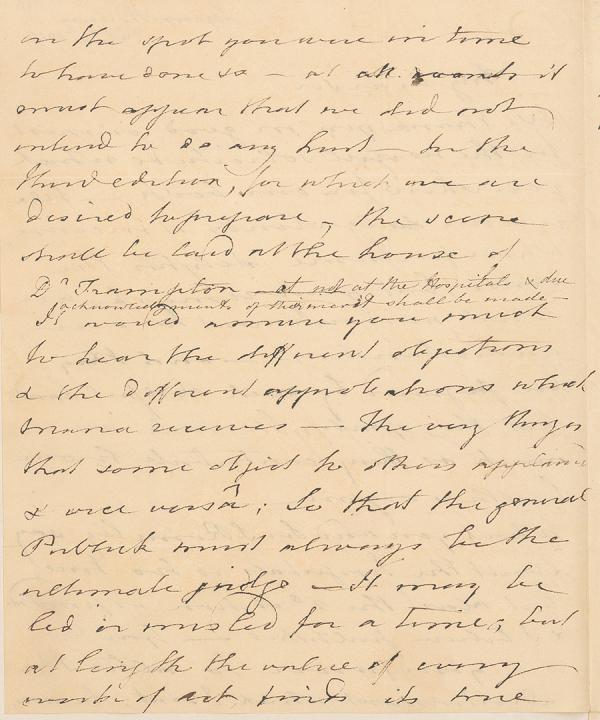 on the spot you were in time
to have done so — at all events it
must appear that we did not
intend to do any hurt — In the
third edition, for which we are
desired to prepare, the scene
shall be laid at the house of
Dr. Frampton — at not at the Hospitals & due
acknowledgments of their merit shall be made —
It would amuse you much
to hear the different objections
& the different approbations which
receives — The very things
that some object to others applaud
& vice versâ; So that the general
Publick must always be the
ultimate judge — It may be
led or misled for a time, but
at length the value of every
work of art finds its true